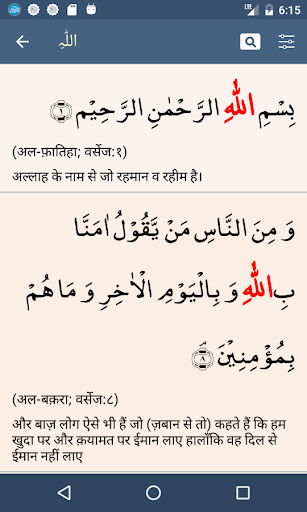 LTE 6:15
اللّٰہِ
بِسْمِ اللّٰهِ الرَّحْمٰنِ الرَّحِیْمِ ۝۱
(अल-फ़ातिहा; वर्सेज:१)
अल्लाह के नाम से जो रहमान व रहीम है।
وَ مِنَ النَّاسِ مَنْ یَّقُوْلُ اٰمَنَّا
بِاللّٰهِ وَ بِالْیَوْمِ الْاٰخِرِ وَ مَا هُمْ
بِمُؤْمِنِیْنَ ۝۸
(अल-बक़रा; वर्सेज:८)
और बाज़ लोग ऐसे भी हैं जो (ज़बान से तो) कहते हैं कि हम
ख़ुदा पर और क़यामत पर ईमान लाए हालाँकि वह दिल से
ईमान नहीं लाए